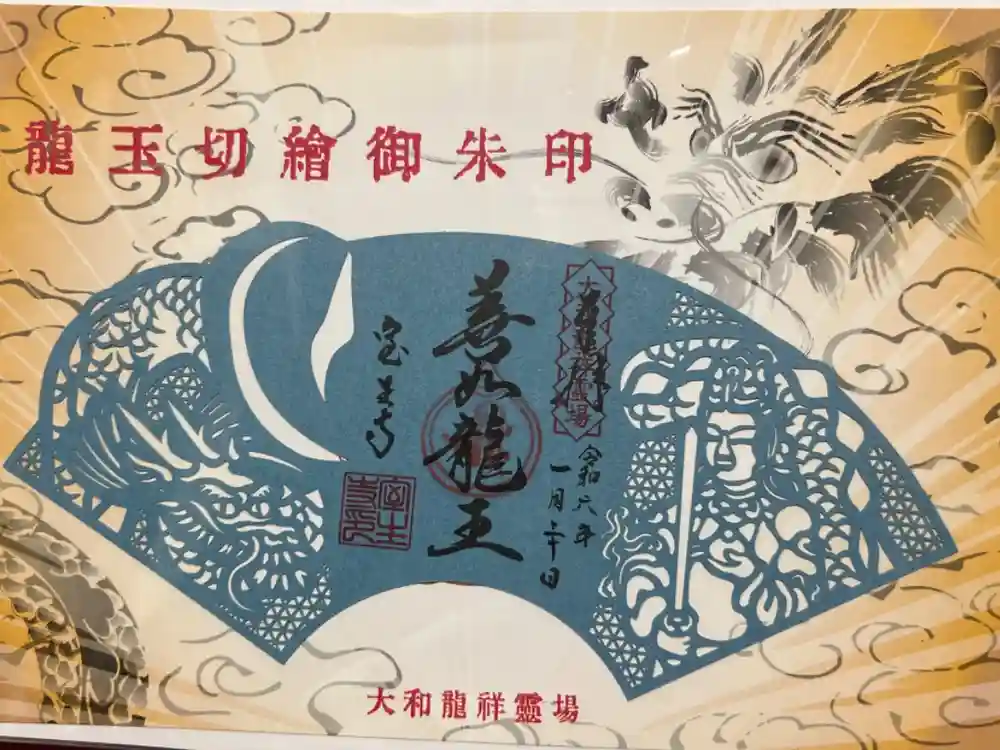 龍玉切繪御朱印
令和六年
一月二十日
善如龍王
室生寺
大和龍祥靈場